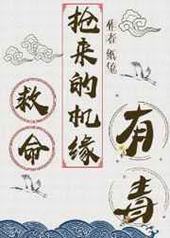 救命
抢来的机缘
有毒
作者 纸笔